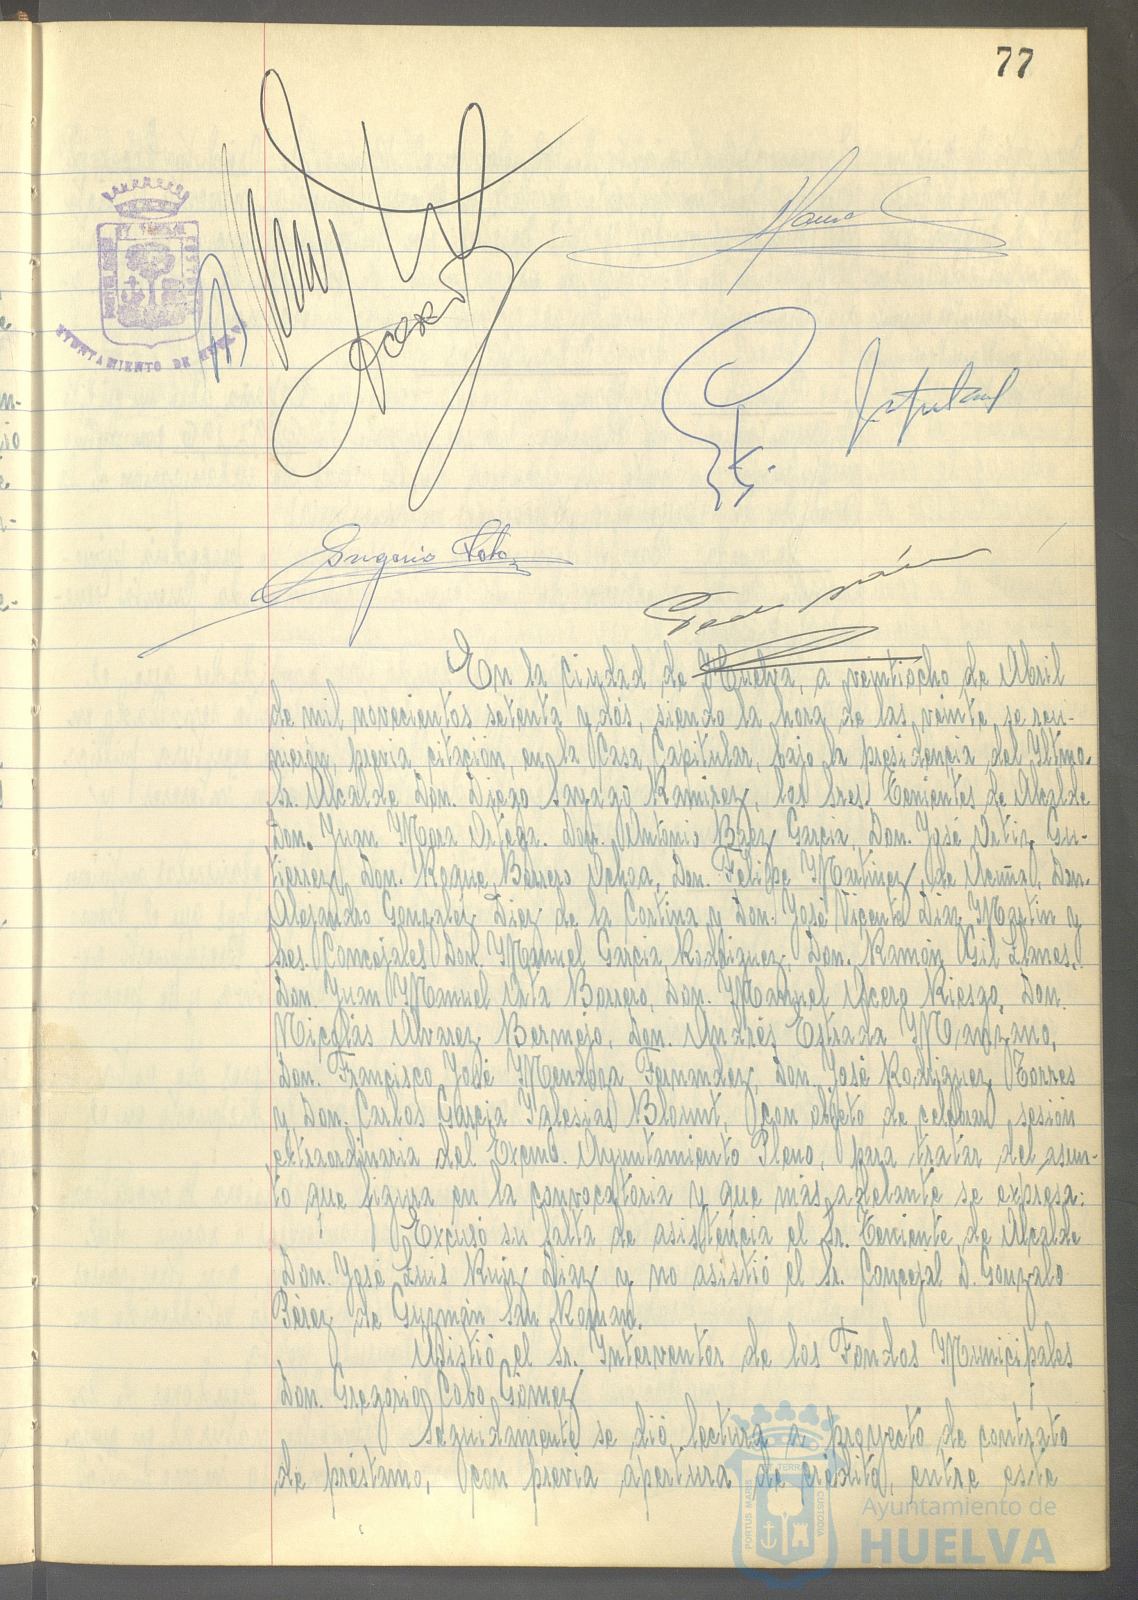 77
AYUNTAMIENTO DE HUELVA
Eugenio
En la ciudad de Huelva, a veintiocho de Abril
de mil novecientos setenta y dos, siendo la hora de las veinte, se reu-
nieron, previa citación, en la Casa Capitular, bajo la presidencia del Iltmo.
Sr. Alcalde Don. Diego Sayago Ramirez, los Sres. Tenientes de Alcalde
Don. Juan Mora Ortega. Don. Antonio Baez Garcia, Don. José Ortiz Gu-
tierrez, Don. Roque Barrero Ochoa, Don. Felipe Martinez de Acuña, Don.
Alejandro Gonzalez Diez de la Cortina y Don. José Vicente Diaz Martin y
Sres. Concejales Don. Manuel Garcia Rodriguez, Don. Ramón Gil Llanes,
Don. Juan Manuel Arta Borrero, Don. Manuel Acero Riesgo, Don.
Nicolás Alvarez Bermejo, Don. Andrés Estrada Manzano,
Don. Francisco José Mendoza Fernandez, Don. José Rodriguez Torres
y Don. Carlos Garcia Iglesias Blount, con objeto de celebrar sesión
extraordinaria del Excmo. Ayuntamiento Pleno, para tratar del asun-
to que figura en la convocatoria y que más adelante se expresa:
Excusó su falta de asistencia el Sr. Teniente de Alcalde
Don. José Luis Ruiz Diaz y no asistió el Sr. Concejal D. Gonzalo
Pérez de Guzmán San Roman.
Asistió el Sr. Interventor de los Fondos Municipales
Don. Gregorio Cobo Gómez
Seguidamente se dió lectura a proyecto de contrato
de préstamo, con previa apertura de crédito, entre este
PORTUS MARIS ET TERRAE CUSTODIA
Ayuntamiento de
HUELVA